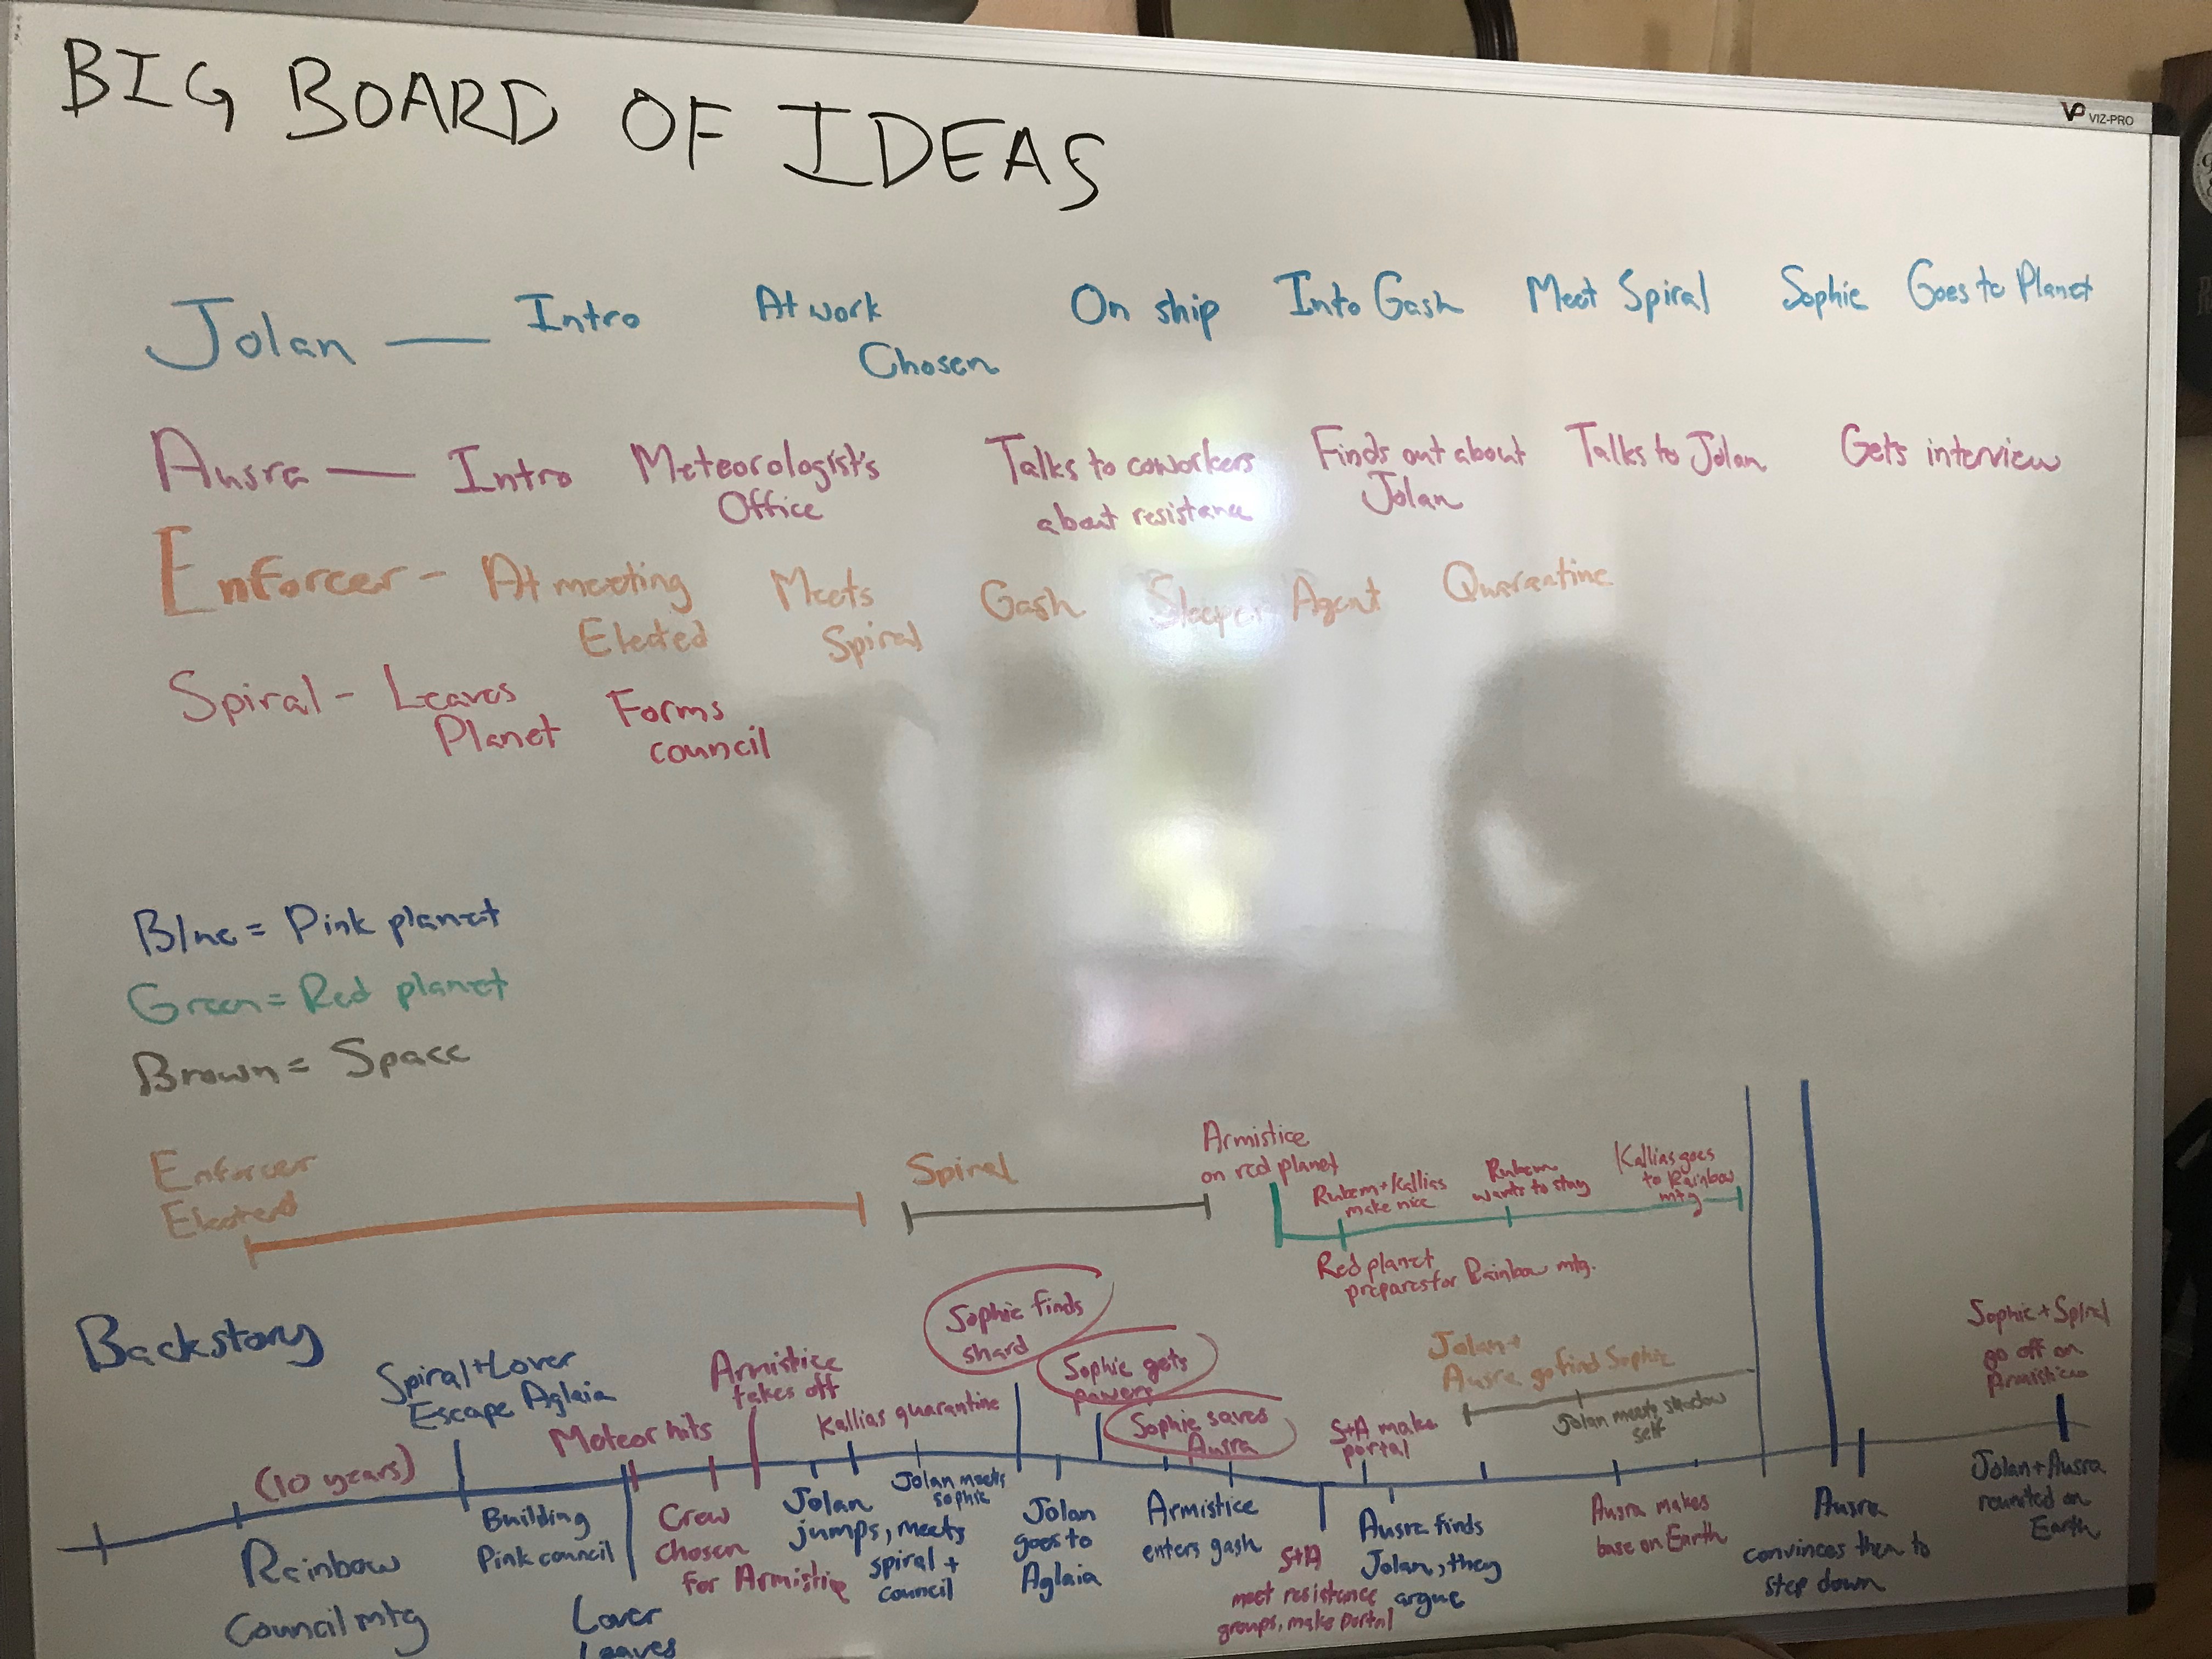 BIG BOARD OF IDEAS
VP VIZ-PRO
Jolan — Intro At work On ship Into Gash Meet Spiral Sophie Goes to Planet
Chosen
Ausra — Intro Meteorologist's Talks to coworkers Finds out about Talks to Jolan Gets interview
Office about resistance Jolan
Enforcer - At meeting Meets Gash Sleeper Agent Quarantine
Elected Spiral
Spiral - Leaves Forms
Planet council
Blue = Pink planet
Green = Red planet
Brown = Space
Enforcer
Elected
Spiral
Armistice
on red planet
Rubem + Kallias
make nice
Rubem
wants to stay
Kallias goes
to Rainbow
mtg
Red planet
prepares for Rainbow mtg.
Backstory
(10 years)
Spiral + Lover
Escape Aglaia
Meteor hits
Armistice
takes off
Kallias quarantine
Sophie finds
shard
Sophie gets
powers
Sophie saves
Ausra
S+A make
portal
Jolan +
Ausra go find Sophie
Jolan meets shadow
self
Sophie + Spiral
go off on
Armistice
Rainbow
Council mtg
Building
Pink council
Lover
Leaves
Crew
chosen
for Armistice
Jolan
jumps, meets
spiral +
council
Jolan meets
sophie
Jolan
goes to
Aglaia
Armistice
enters gash
S+A
meet resistance
groups, make portal
Ausra finds
Jolan, they
argue
Ausra makes
base on Earth
Ausra
convinces them to
step down
Jolan + Ausra
reunited on
Earth